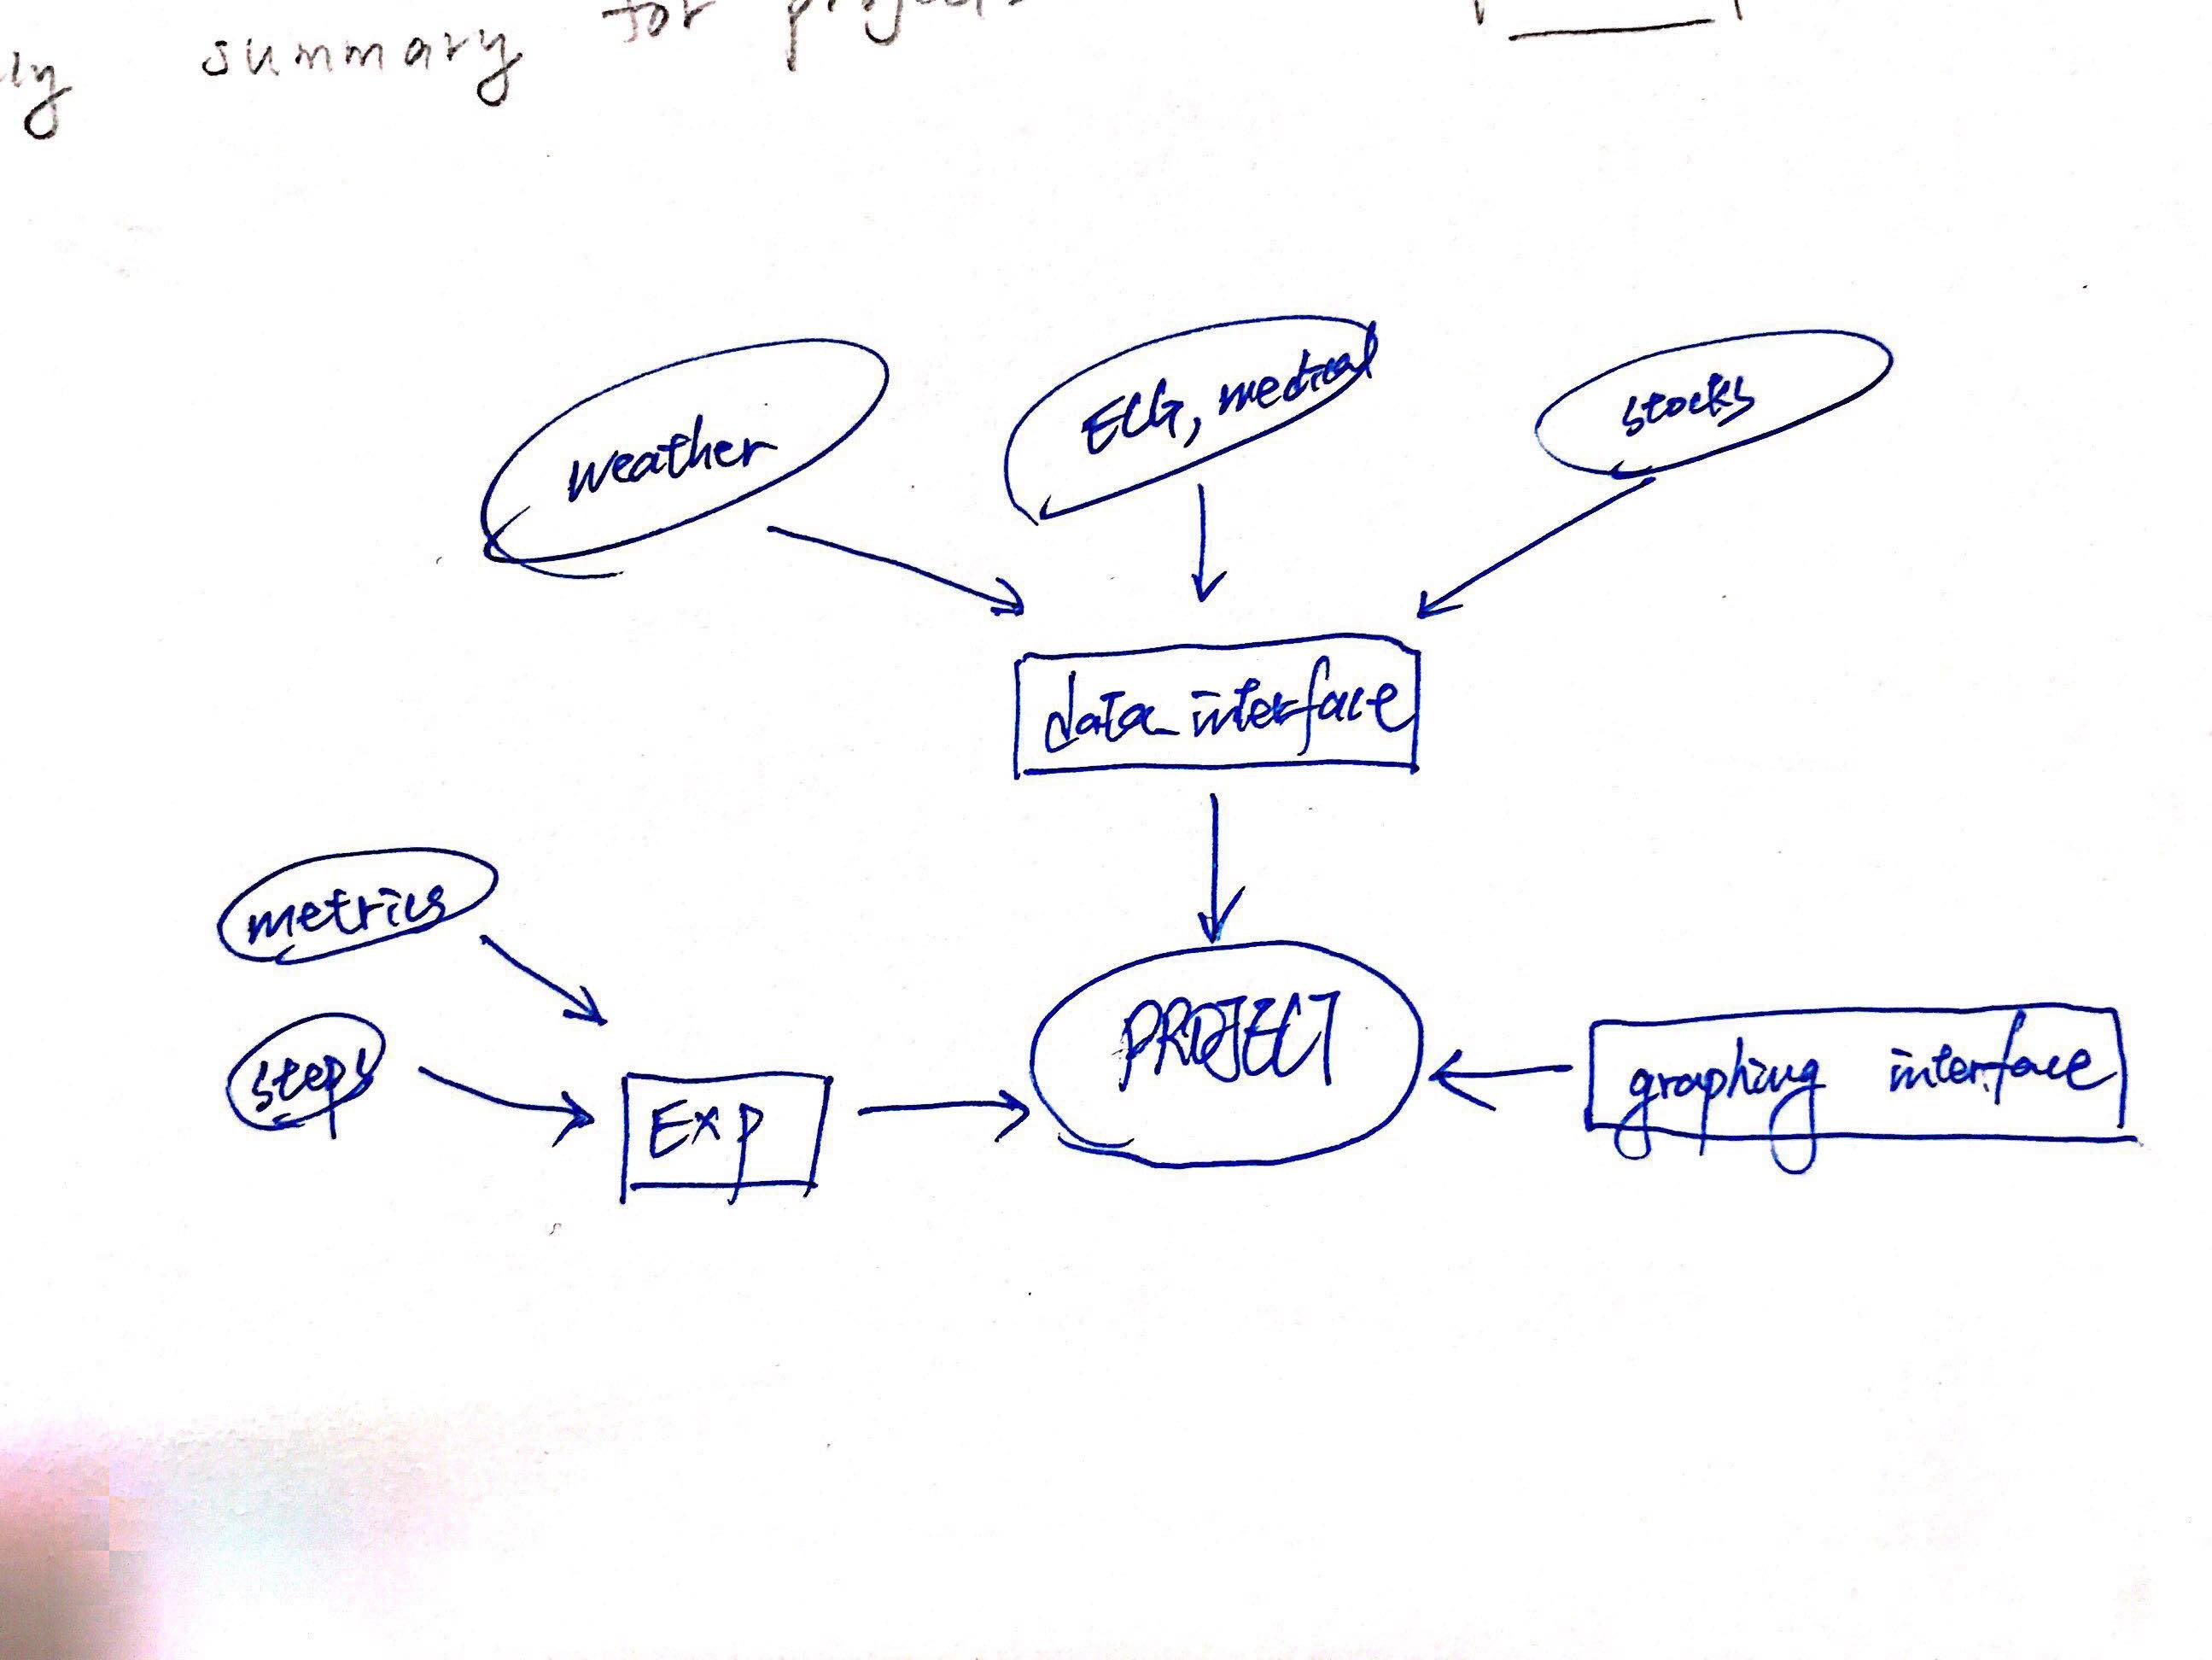 summary for
weather
ECG, medical
stocks
data interface
metrics
steps
Exp
PROJECT
graphing interface